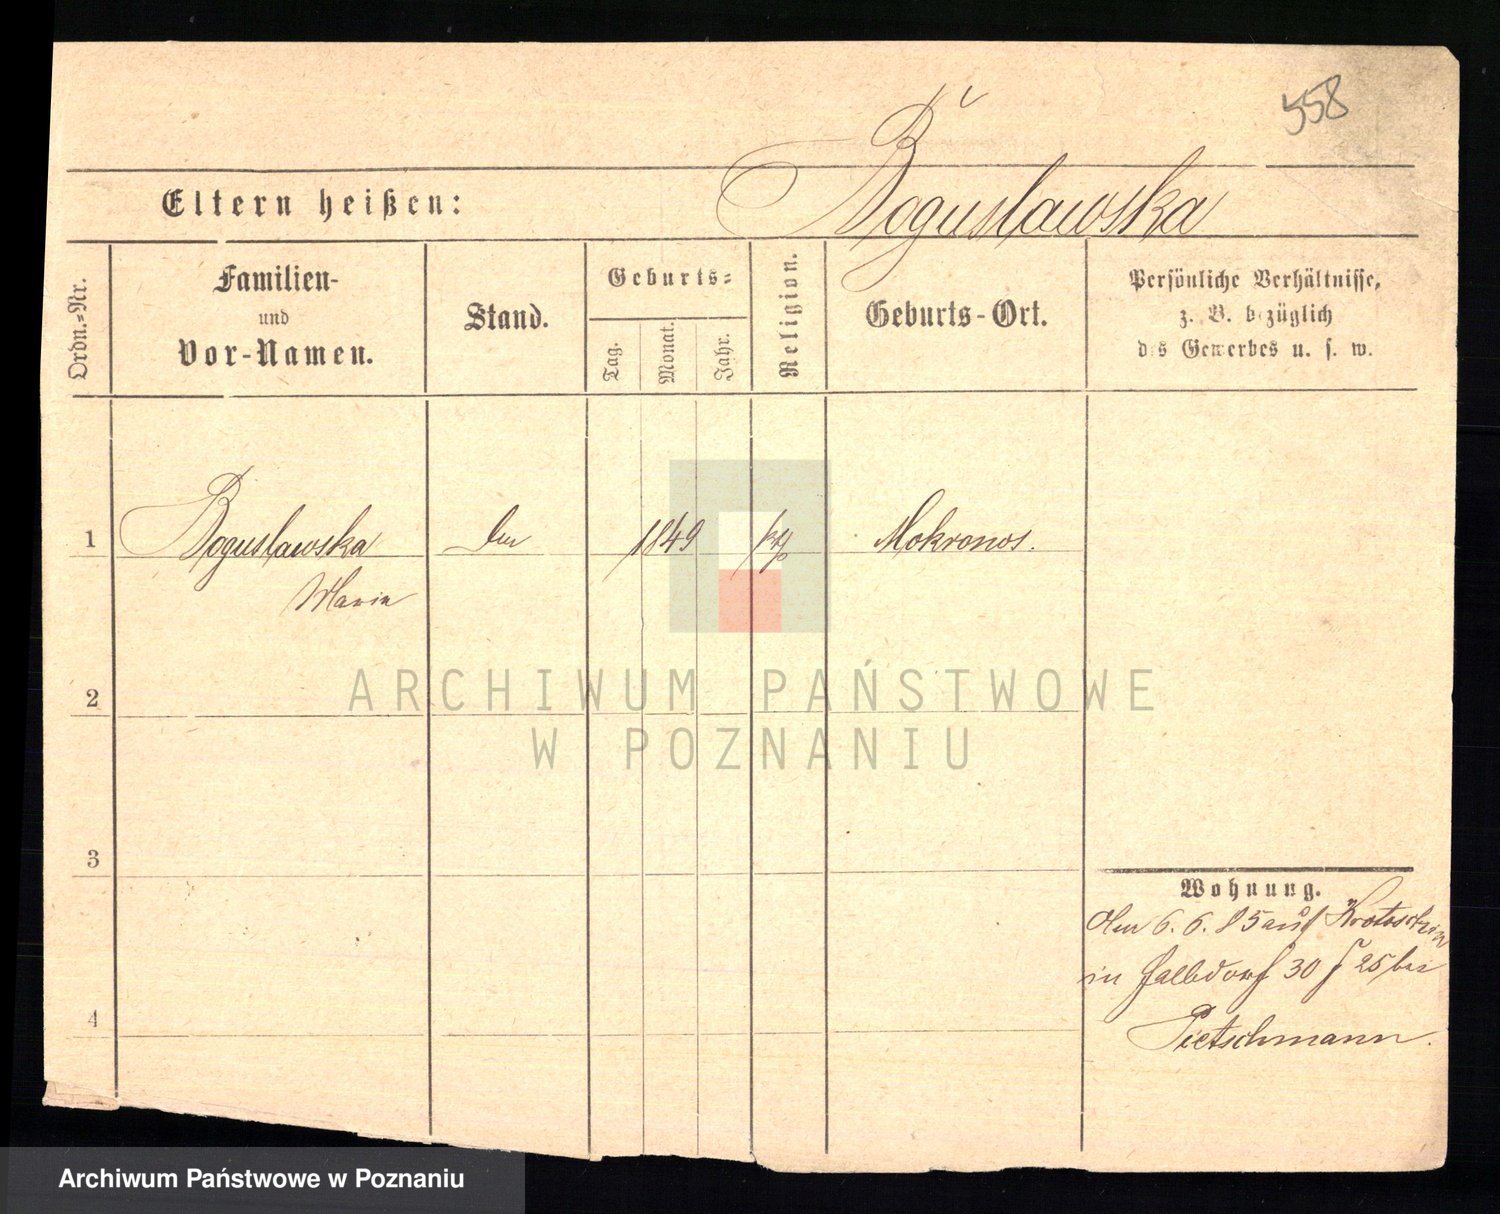 558
Boguslawska
Eltern heißen:
Ordn.-Nr.
Familien-
und
Vor-Namen.
Stand.
Geburts-
Tag.
Monat.
Jahr.
Religion.
Geburts-Ort.
Persönliche Verhältnisse,
z. B. bezüglich
des Gewerbes u. s. w.
1
Boguslawska
Maria
1849
kth
Mokronos.
2
3
4
ARCHIWUM PAŃSTWOWE
W POZNANIU
Wohnung.
6. 6. 85 aus Krotoschin
in Halbdorf 30 25 bei
Pietschmann.
Archiwum Państwowe w Poznaniu